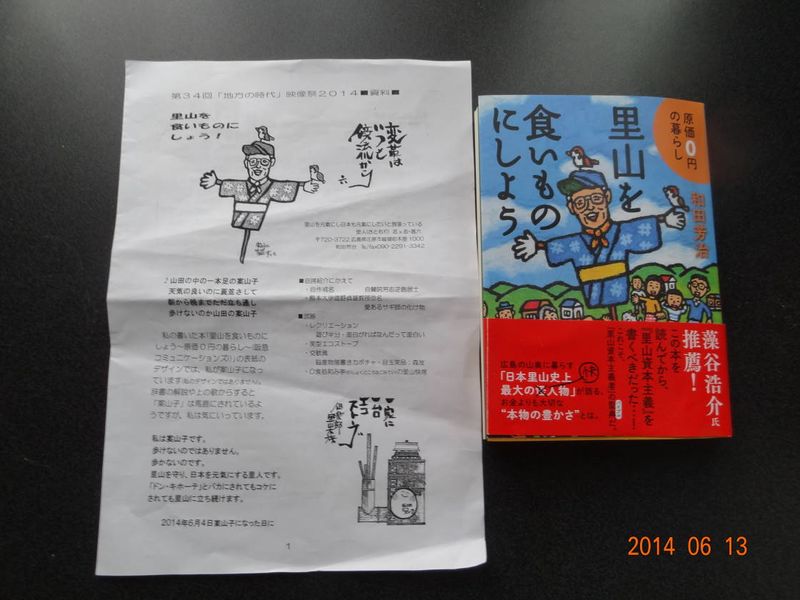 第34回「地方の時代」映像祭2014■資料■
里山を
食いものに
しょう！
変革は
いつも
六
里山を元気にし日本も元気にしたいと頑張っている
〒720-3722 広島県庄原市総領町木屋1000
和田芳治 Tel/fax090-2291-3342
♪山田の中の一本足の案山子
天気の良いのに蓑笠さして
朝から晩までただ立ち通し
歩けないのか山田の案山子
私の書いた本「里山を食いものに
しょう～原価０円の暮らし～(阪急
コミュニケーションズ)」の表紙の
デザインでは、私が案山子になっ
ています(私のデザインではありません)。
辞書の解説や上の歌からすると
「案山子」は馬鹿にされているよ
うですが、私は気にいっています。
私は案山子です。
歩けないのではありません。
歩かないのです。
里山を守り、日本を元気にする里人です。
「ドン・キホーテ」とバカにされてもコケに
されても里山に立ち続けます。
2014年6月4日案山子になった日に
■自己紹介にかえて
・自作戒名
愛あるサギ師の化け物
■武器
・レクリエーション
遊び半分・面白がればなんだって面白い
・笑型エコストーブ
一家に
一台
エコ
ストーブ
1
原価０円
の暮らし
里山を
食いもの
にしよう
和田芳治
藻谷浩介氏
推薦！
この本を
読んでから、
『里山資本主義』を
書くべきだった……！
これこそ、
「里山資本主義」の聖典だ。
広島の山奥に暮らす
「日本里山史上
最大の人物」が語る、
お金よりも大切な
“本物の豊かさ”とは。
2014 06 13